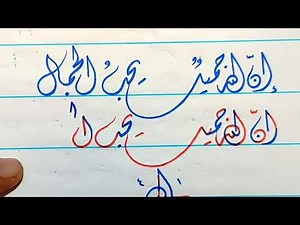 إنّ الله جميلٌ يحبُّ الجمال
انّ الله جميل يحب ا